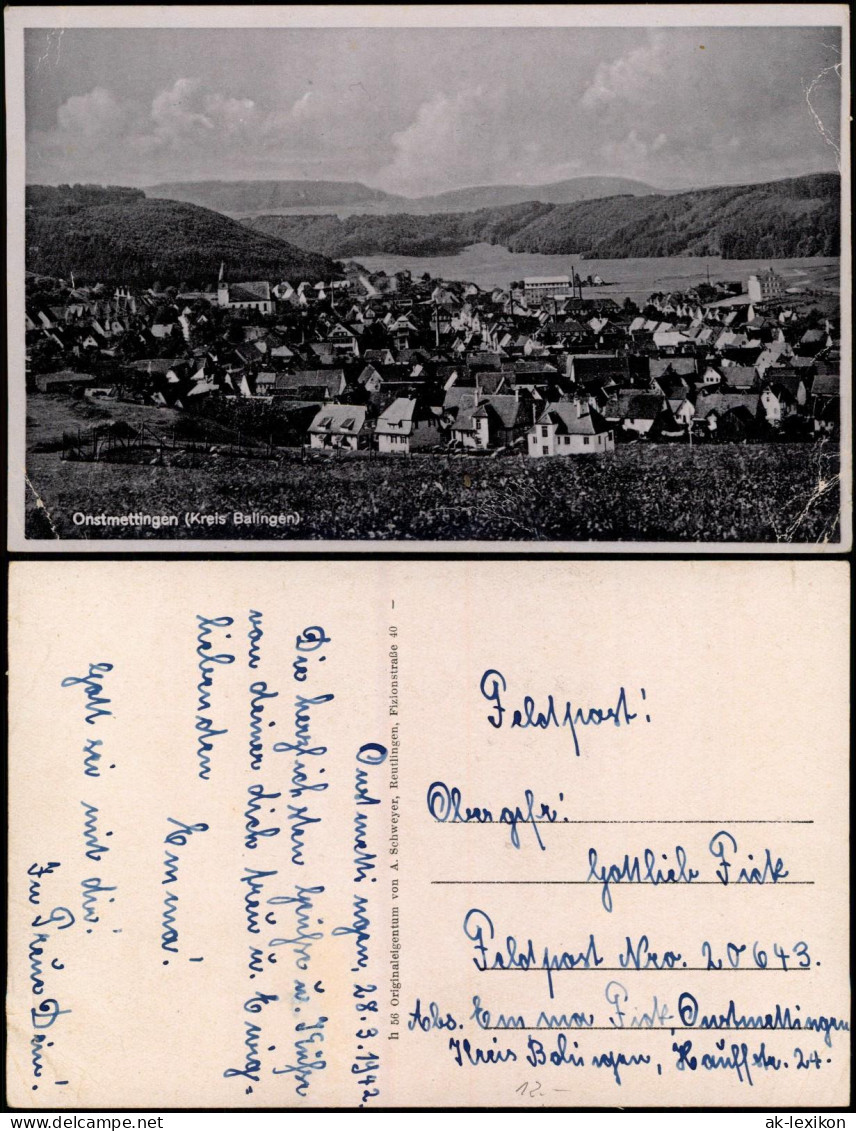 Onstmettingen (Kreis Balingen)
Onstmettingen, 28.3.1942.
Die herzlichsten Grüße u. Küße
von deiner dich treu u. Einig=
liebenden
Emma!
Gott sei mit dir!
In Treue Dein!
h 56 Originaleigentum von A. Schweyer, Reutlingen, Fizionstraße 40 —
Feldpost!
Obergefr!
Gottlieb Fick
Feldpost Nro. 20643.
Abs. Emma Fick, Onstmettingen
Kreis Balingen, Hauffstr. 24.
12.-
www.ak-ansichtskarten.de
ak-lexikon